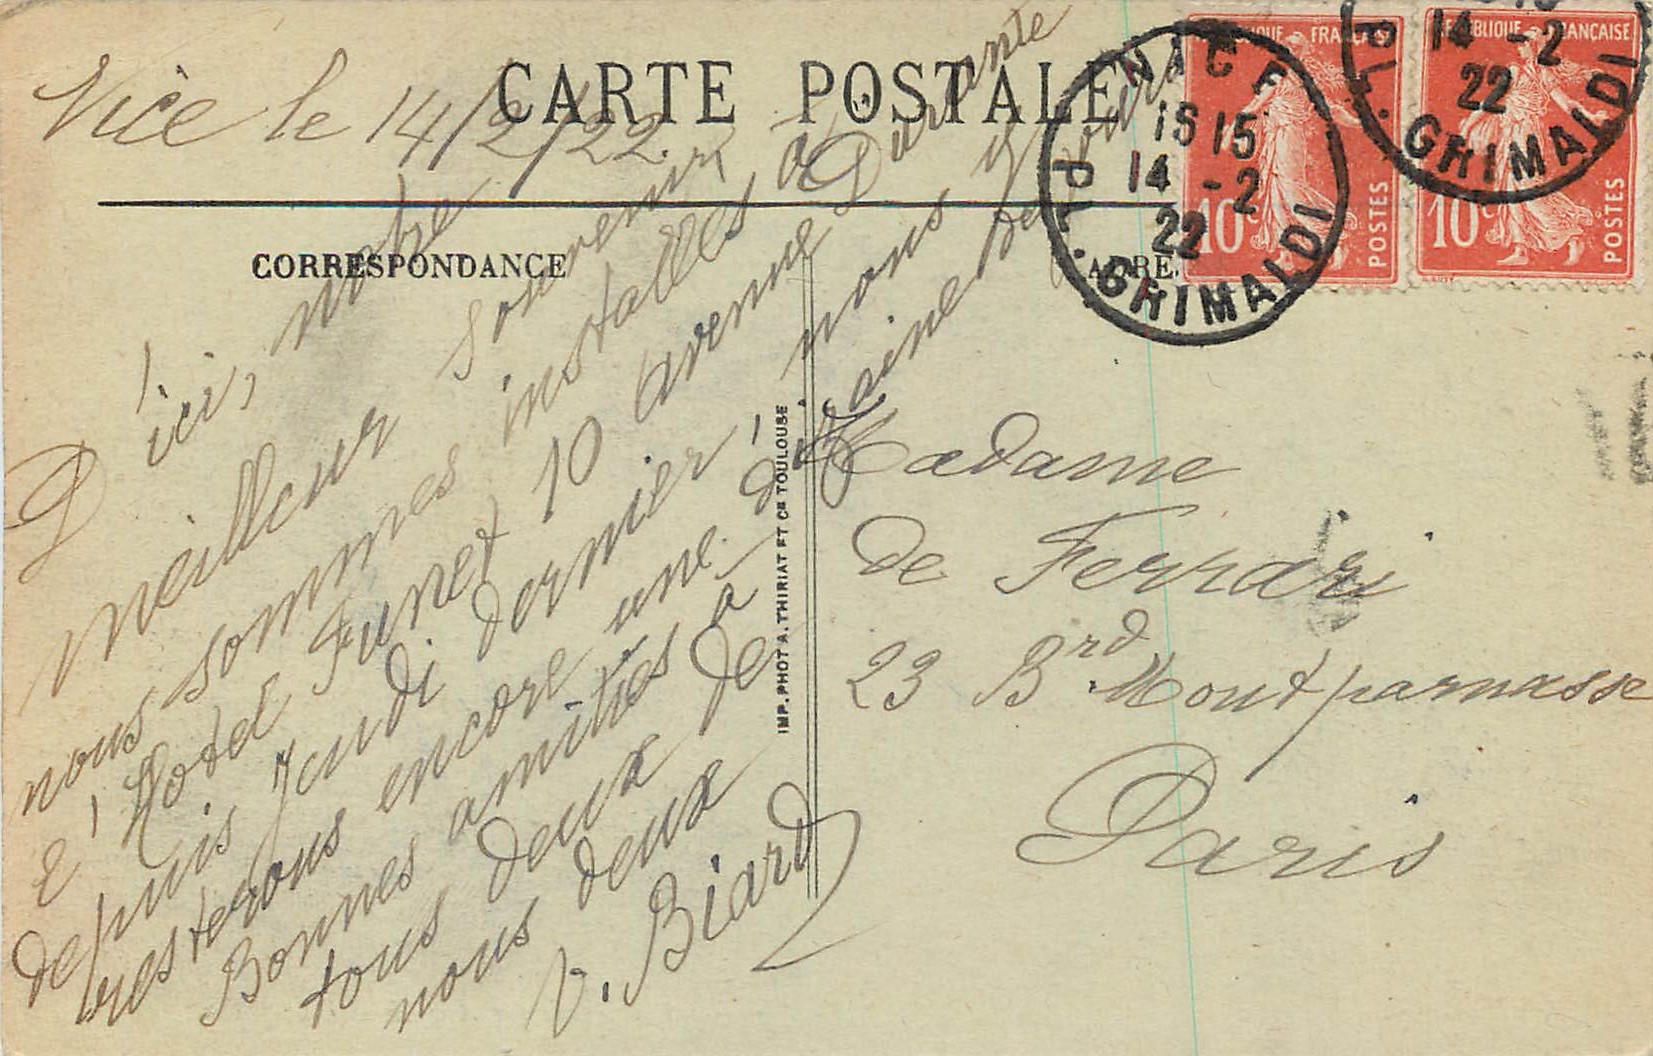 CARTE POSTALE
Nice le 14/2/22.
CORRESPONDANCE
ADRE
D'ici, notre
meilleur souvenir
nous sommes installés à
l'Hotel Funel 10 avenue Durante
depuis Jeudi dernier, nous y
resterons encore une dizaine de jours
Bonnes amitiés à
tous deux de
nous deux
V. Biard
IMP. PHOT A. THIRIAT ET Cie TOULOUSE
Madame
de Ferrari
23 Brd Montparnasse
Paris
NICE
15 15
14 - 2
22
PL. GRIMALDI
14 - 2
22
PL. GRIMALDI
FRANÇAISE
10c
POSTES
RÉPUBLIQUE FRANÇAISE
10c
POSTES